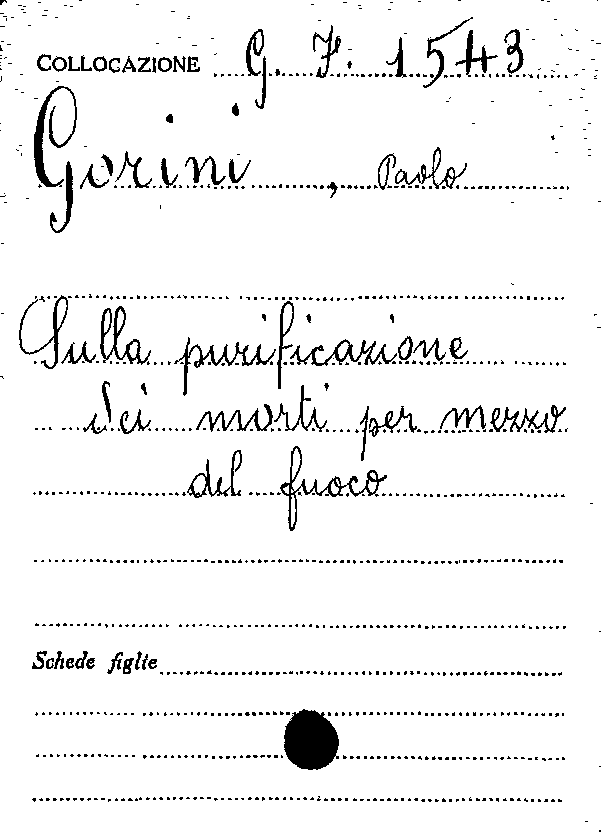 COLLOCAZIONE G. F. 1543
Gorini, Paolo
Sulla purificazione
dei morti per mezzo
del fuoco
Schede figlie